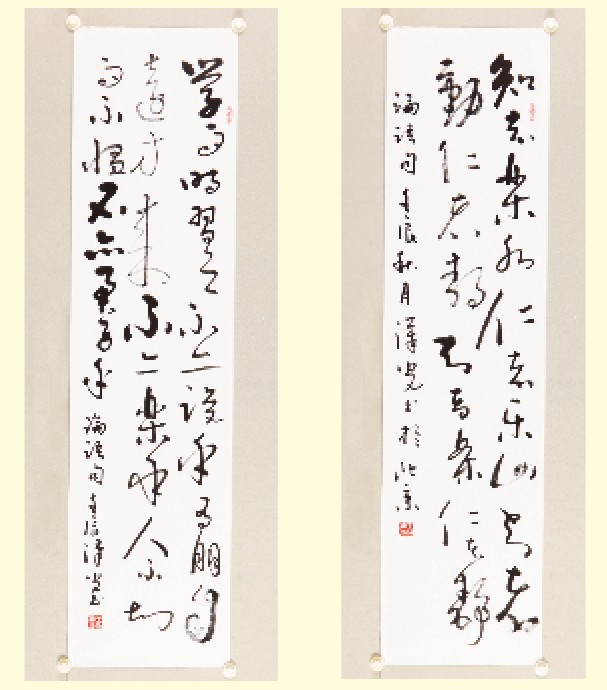 学而時習之不亦説乎有朋自
遠方来不亦樂乎人不知
而不愠不亦君子乎
論語句壬辰書
知者樂水仁者乐山知者
動仁者静知者樂仁者
論語句壬辰秋月書於北京